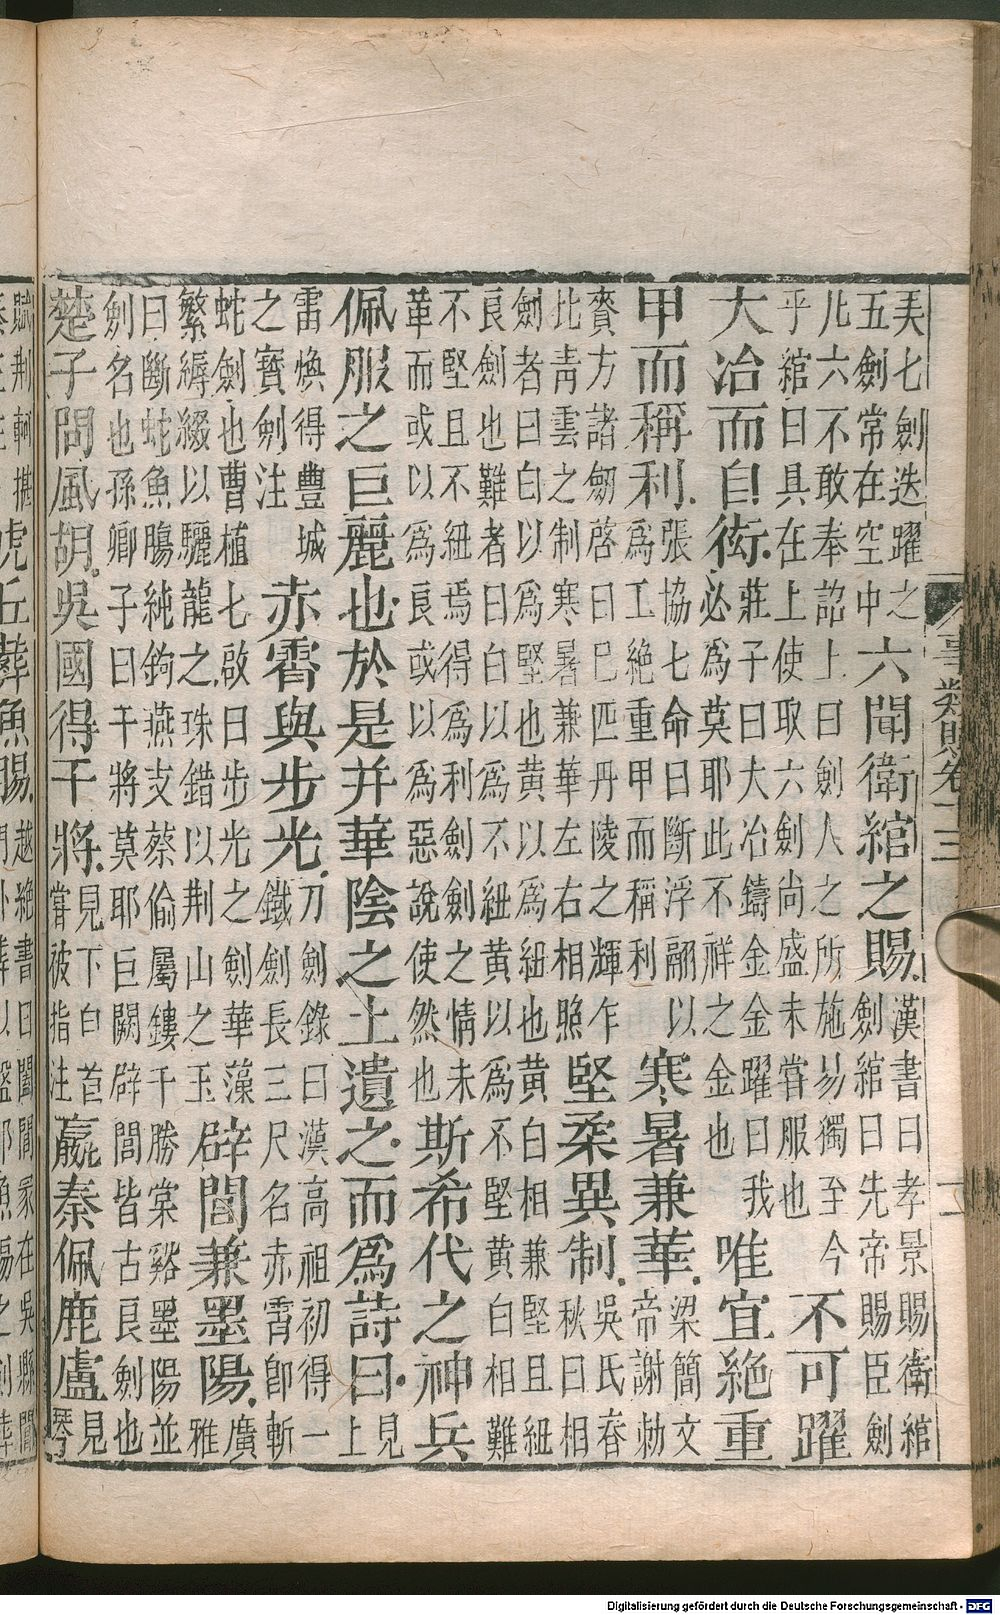 美七劍迭躍之
五劍常在空中
六聞衛綰之賜
漢書曰孝景賜衛綰
劍綰曰先帝賜臣劍
凡六不敢奉詔上曰劍人之所施易獨至今
乎綰曰具在上使取六劍尚盛未嘗服也
不可躍
大冶而自衒
莊子曰大冶鑄金金躍曰我
必爲莫耶此不祥之金也
唯宜絶重
甲而稱利
張協七命曰斷浮翮以
爲工絶重甲而稱利
寒暑兼華
梁簡文
帝謝勑
賚方諸劒啓曰巳匹丹陵之輝乍
比青雲之制寒暑兼華左右相照
堅柔異制
吳氏春
秋曰相
劍者曰白以爲堅也黃以爲紐也黃白相兼堅且紐
良劍也難者曰白以爲不紐黃以爲不堅黃白相難
不堅且不紐焉得爲利劍劍之情未
革而或以爲良或以爲惡說使然也
斯希代之神兵
佩服之巨麗也於是并華陰之土遺之而爲詩曰
見
上
雷煥得豐城
之寶劍注
赤霄與步光
刀劍錄曰漢高祖初得一
鐵劍長三尺名赤霄卽斬
蛇劍也曹植七啟曰步光之劍華藻
繁縟綴以驪龍之珠錯以荆山之玉
辟閭兼墨陽
廣
雅
曰斷蛇魚腸純鉤燕支蔡倫屬鏤千勝棠谿墨陽並
劍名也孫卿子曰干將莫耶巨闕辟閭皆古良劍也
楚子問風胡吳國得干將
見下白首
嘗被指注
嬴秦佩鹿盧
見
琴
賦荆軻
虎丘葬魚腸
越絶書曰闔閭冢在吳縣閶
事類賦卷十三
Digitalisierung gefördert durch die Deutsche Forschungsgemeinschaft - DFG